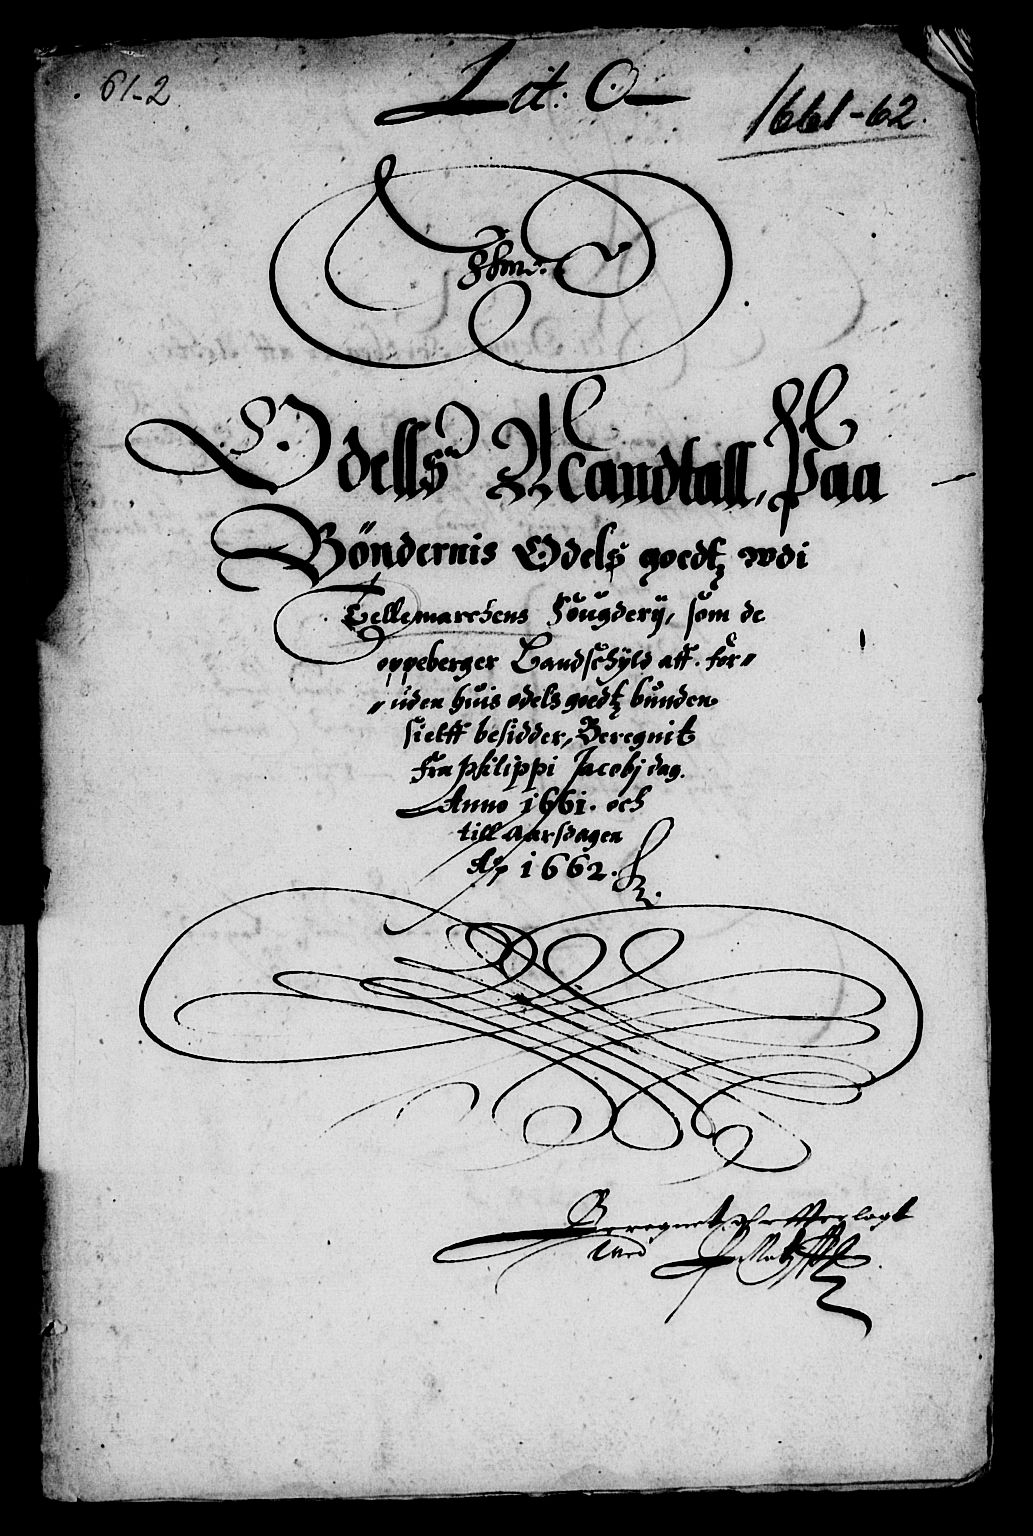 61-2
Lit: O
1661-62.
Odells Mandtall, Paa
Böndernis Odels goedtz wdi
Tellemarchens Fougderÿ, som de
oppeberger Landschÿld aff. for"
"uden huis odels goedtz bunden
sielff besidder, Beregnit
fra Philippi Jacobj dag.
Anno 1661. och
till aarsdagen
Ao 1662.
Beregnet
med